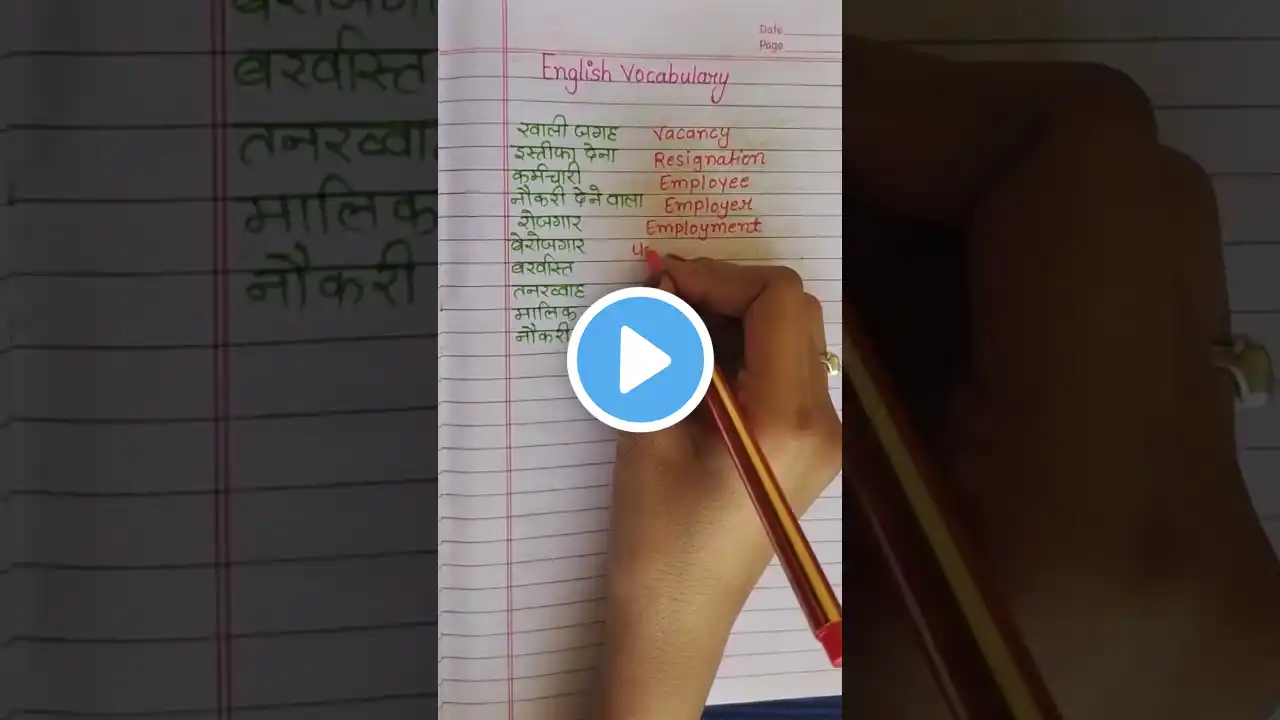 Date
Page
English Vocabulary
खाली जगह Vacancy
इस्तीफा देना Resignation
कर्मचारी Employee
नौकरी देने वाला Employer
रोजगार Employment
बेरोजगार Un
बरर्वास्त
तनख्वाह
मालिक
नौकरी